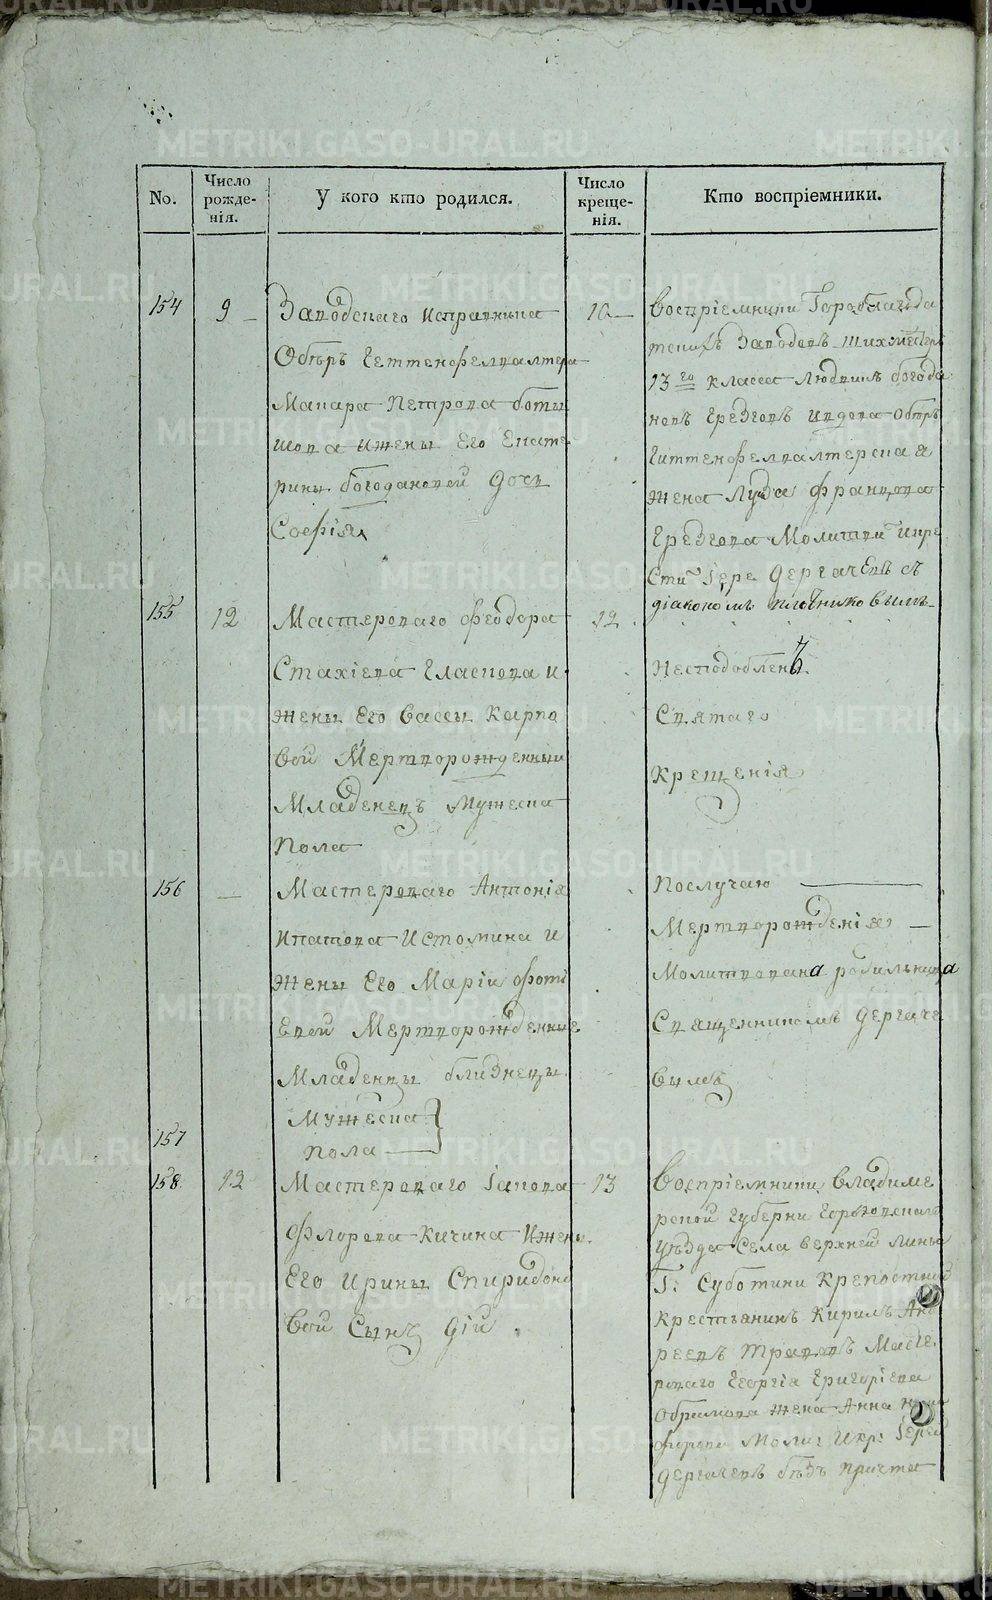 No.
Число рожде-нія.
У кого кто родился.
Число креще-нія.
Кто воспріемники.
154
9
Заводскаго исправника
Обѣръ Гиттенфелвалтера
Макара Петрова боты
шова и жены Его Екате
рины богодановой Дочь
Софія
10
Воспріемники Гороблагода
тскихъ Заводовъ Шихмейстеръ
13го класса
богода
новъ
Обѣръ
Гиттенфелвалтерская
жена Луиза Францова
Молитви и кре
сти Іере Дергачевъ съ
діакономъ плотниковымъ
155
12
Мастероваго Феодора
Стахіева Гласкова и
жены Его Вассы Карпо
вой Мертворожденный
Младенецъ Мужеска
пола
12
Несподобленъ
Святаго
Крещенія
156
Мастероваго Антонія
Ипатова Истомина и
жены Его Маріи Фоти
евой Мертворожденные
Младенцы близнецы
Мужеска
пола
157
По случаю
Мертворожденія
Молитвована родильница
Священникомъ Дергаче
вымъ
158
12
Мастероваго Іакова
Флорова Кичина и жены
Его Ирины Спиридоно
вой Сынъ Дій
13
Воспріемники Владиме
рской Губерни Гороховскаго
уѣзда Села верхней
Г: Суботини Крепостной
Крестьянинъ Кирилъ Анд
реевъ Травовъ Масте
роваго Георгія Григоріева
жена Анна
Моли: и кр: Іерей
Дергачевъ безъ причта
METRIKI.GASO-URAL.RU